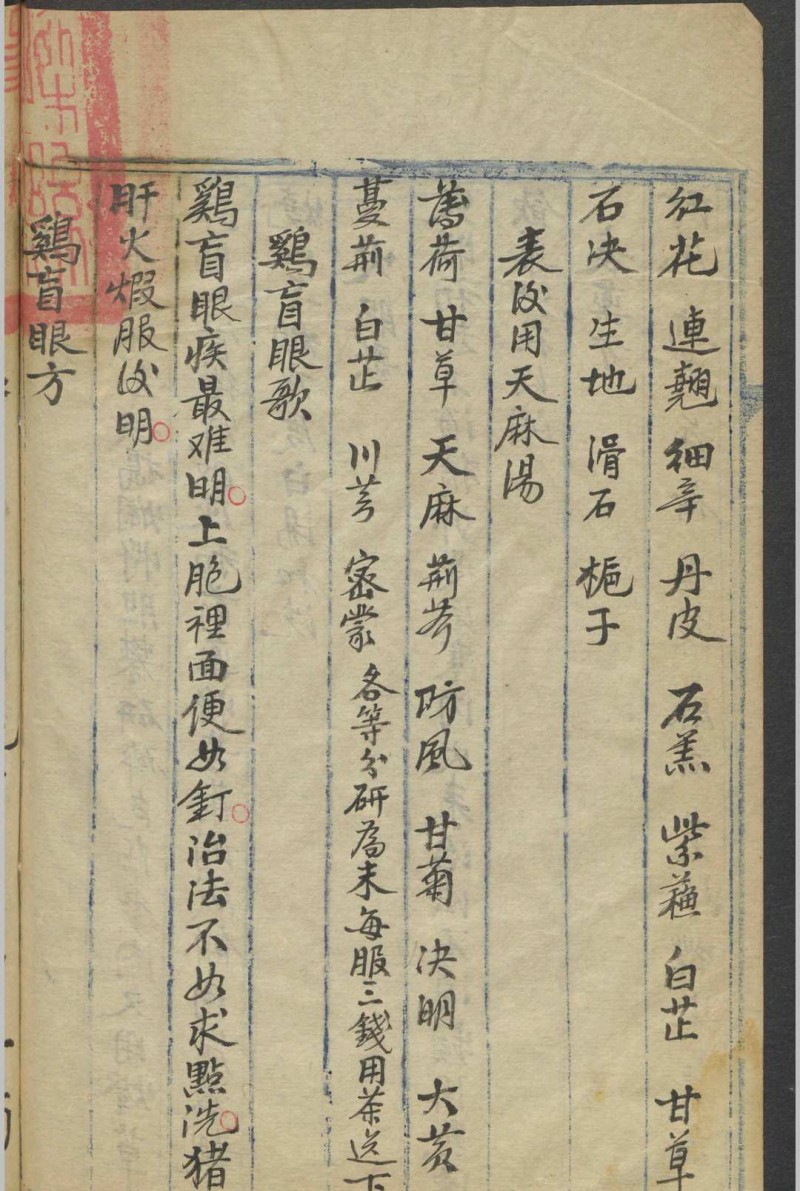 红花 連翹 细辛 丹皮 石羔 紫蘓 白芷 甘草
石决 生地 滑石 梔子
表後用天麻湯
薄荷 甘草 天麻 荊芥 防風 甘菊 决明 大黄
蔓荊 白芷 川芎 密蒙 各等分研為末每服三錢用茶送下
鷄盲眼歌
鷄盲眼疾最难明上胞裡面便如釘治法不如求點洗猪
肝火煆服後明
鷄盲眼方